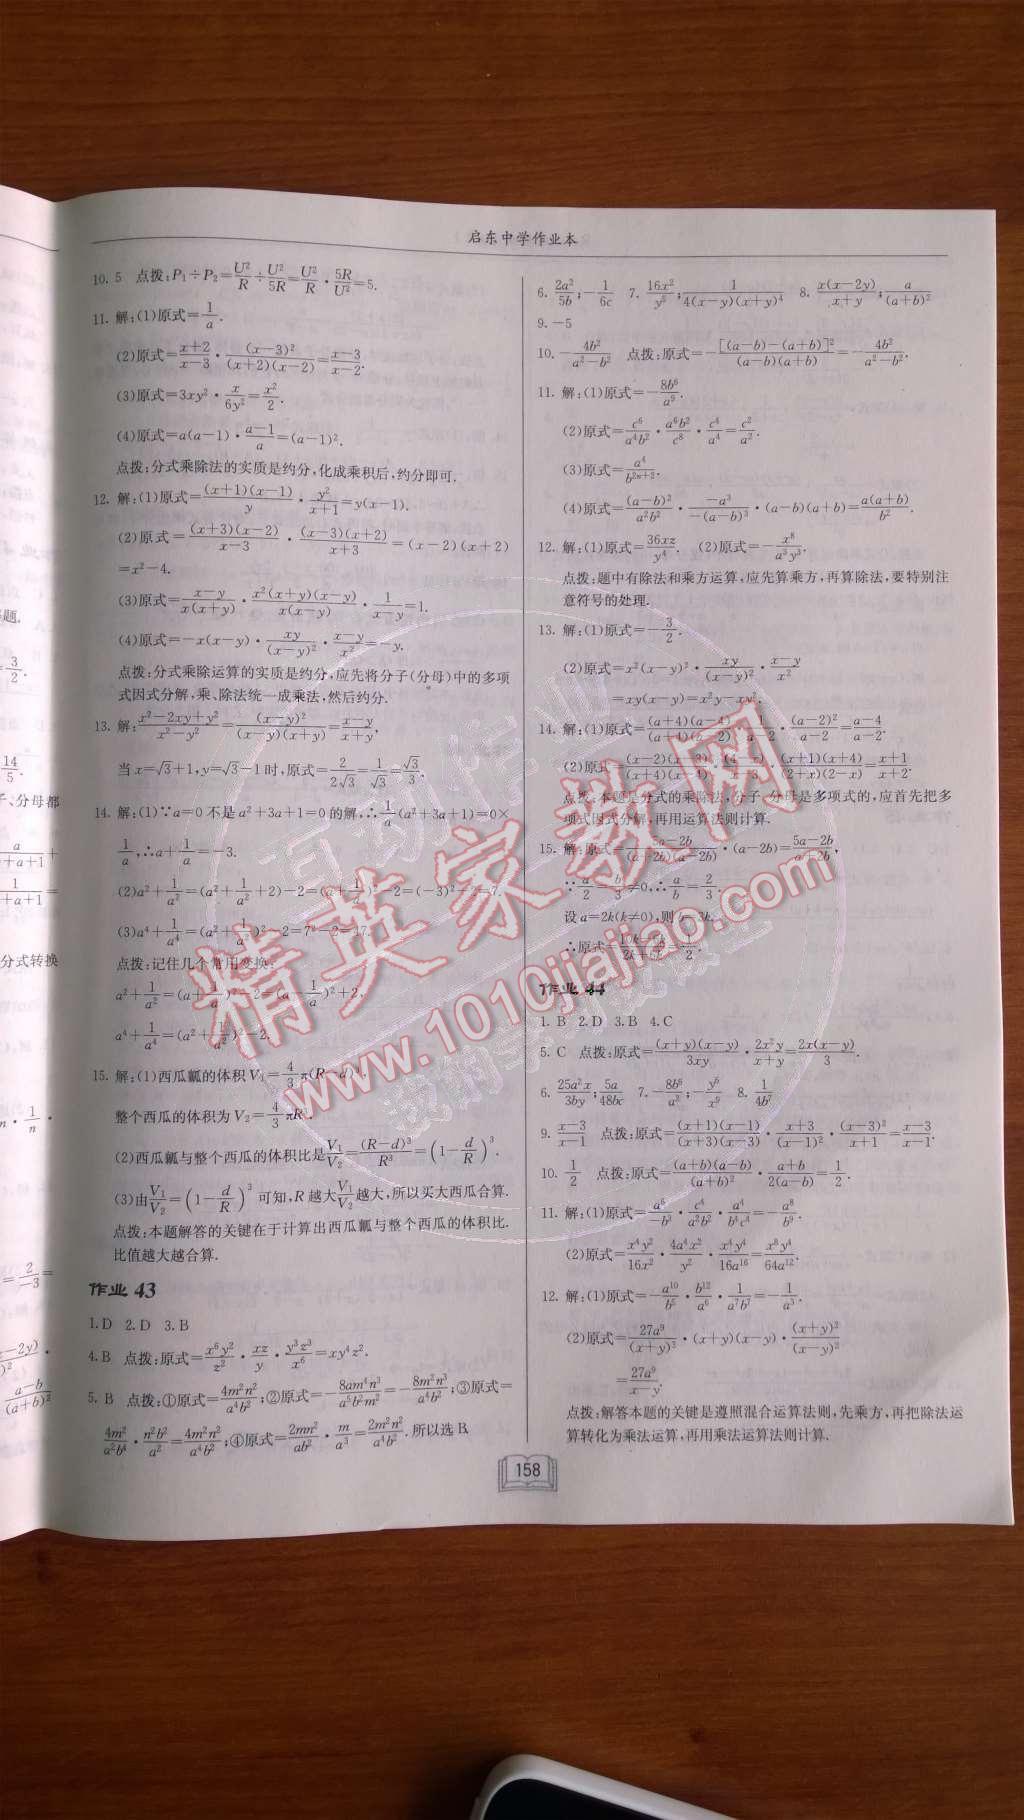 启东中学作业本
10. 5 点拨:P₁÷P₂=U²/R÷U²/5R=U²/R·5R/U²=5.
11. 解:(1)原式=1/a.
(2)原式=(x+2)/(x-3)·(x-3)²/((x+2)(x-2))=(x-3)/(x-2).
(3)原式=3xy²·x/6y²=x²/2.
(4)原式=a(a-1)·(a-1)/a=(a-1)².
点拨:分式乘除法的实质是约分,化成乘积后,约分即可.
12. 解:(1)原式=(x+1)(x-1)/y·y²/(x+1)=y(x-1).
(2)原式=(x+3)(x-2)/(x-3)·(x-3)(x+2)/(x+3)=(x-2)(x+2)
=x²-4.
(3)原式=(x-y)/(x(x+y))·x²(x+y)(x-y)/(x(x-y))·1/(x-y)=1.
(4)原式=-x(x-y)·xy/(x-y)²·(x-y)/x²=-y.
点拨:分式乘除运算的实质是约分,应先将分子(分母)中的多项
式因式分解,乘、除法统一成乘法,然后约分.
13. 解:(x²-2xy+y²)/(x²-y²)=(x-y)²/((x-y)(x+y))=(x-y)/(x+y),
当x=√3+1,y=√3-1时,原式=2/2√3=1/√3=√3/3.
14. 解:(1)∵a=0不是a²+3a+1=0的解,∴1/a(a²+3a+1)=0×
1/a,∴a+1/a=-3.
(2)a²+1/a²=(a²+1/a²+2)-2=(a+1/a)²-2=(-3)²-2=7.
(3)a⁴+1/a⁴=(a²+1/a²)²-2=7²-2=47.
点拨:记住几个常用变换:
a²+1/a²=(a+1/a)²-2=(a-1/a)²+2,
a⁴+1/a⁴=(a²+1/a²)²-2.
15. 解:(1)西瓜瓤的体积V₁=4/3π(R-d)³,
整个西瓜的体积为V₂=4/3πR³.
(2)西瓜瓤与整个西瓜的体积比是V₁/V₂=(R-d)³/R³=(1-d/R)³.
(3)由V₁/V₂=(1-d/R)³可知,R越大V₁/V₂越大,所以买大西瓜合算.
点拨:本题解答的关键在于计算出西瓜瓤与整个西瓜的体积比.
比值越大越合算.
作业 43
1. D 2. D 3. B
4. B 点拨:原式=x⁶y²/z²·xz/y·y³z³/x⁶=xy⁴z².
5. B 点拨:①原式=4m²n²/a⁴b²;②原式=-8am⁴n³/a⁵b²m²=-8m²n³/a⁴b²;③原式=
4m²/a²b⁴·n²b²/a²=4m²n²/a⁴b²;④原式=2mn²/ab²·m/a³=2m²n²/a⁴b².所以选B.
6. 2a²/5b;-1/6c 7. 16x²/y⁶;1/(4(x-y)(x+y)⁴) 8. x(x-2y)/(x+y);a/(a+b)²
9. -5
10. -4b²/(a²-b²) 点拨:原式=-[(a-b)-(a+b)]²/((a-b)(a+b))=-4b²/(a²-b²).
11. 解:(1)原式=-8b⁶/a⁹.
(2)原式=c⁶/a⁴b²·a⁶b²/c⁸·c⁴/a⁴=c²/a².
(3)原式=a⁴/b²ⁿ⁺².
(4)原式=(a-b)²/a²b²·-a³/-(a-b)³·(a-b)(a+b)=a(a+b)/b².
12. 解:(1)原式=36xz/y⁴. (2)原式=-x⁸/a³y³.
点拨:题中有除法和乘方运算,应先算乘方,再算除法,要特别注
意符号的处理.
13. 解:(1)原式=-3/2.
(2)原式=x²(x-y)²·xy/(x-y)²·(x-y)/x²
=xy(x-y)=x²y-xy².
14. 解:(1)原式=(a+4)(a-4)/(a+4)(a-2)·1/2·(a-2)²=(a-4)/(a-2).
(2)原式=·(x+1)(x+4)/(2+x)(2-x)=(x+1)/(x+2).
点拨:本题是分式的乘除法,分子、分母是多项式的,应首先把多
项式因式分解,再用运算法则计算.
15. 解:原式=(5a-2b)/((a+2b)(a-2b))·(a-2b)=(5a-2b)/(a+2b),
∵a/2=b/3≠0,∴a/b=2/3.
设a=2k(k≠0),则b=3k.
∴原式=(10k-6k)/(2k+6k)=1/2.
作业 44
1. B 2. D 3. B 4. C
5. C 点拨:原式=(x+y)(x-y)/3xy·2x²y/(x+y)=2x(x-y)/3.
6. 25a²x/3by;5a/48bc 7. -8b⁶/a³;-y⁶/x⁹ 8. 1/4b⁷
9. (x-3)/(x-1) 点拨:原式=(x+1)(x-1)/((x+3)(x-3))·(x+3)/(x-1)²·(x-3)²/(x+1)=(x-3)/(x-1).
10. 1/2 点拨:原式=(a+b)(a-b)/(a+b)²·(a+b)/2(a-b)=1/2.
11. 解:(1)原式=a⁶/-b³·c⁴/a²b²·a⁴/b⁴c⁴=-a⁸/b⁹.
(2)原式=x⁴y²/16x²·4a⁴x²/y²·x⁴y⁴/16a¹⁶=x⁸y⁴/64a¹².
12. 解:(1)原式=-a¹⁰/b⁵·b¹²/a⁶·1/a⁷b⁷=-1/a³.
(2)原式=27a⁹/(x+y)³·(x+y)(x-y)·(x+y)²/(x-y)²
=27a⁹/(x-y).
点拨:解答本题的关键是遵照混合运算法则,先乘方,再把除法运
算转化为乘法运算,再用乘法运算法则计算.
158
精英家教网
www.1010jiajiao.com